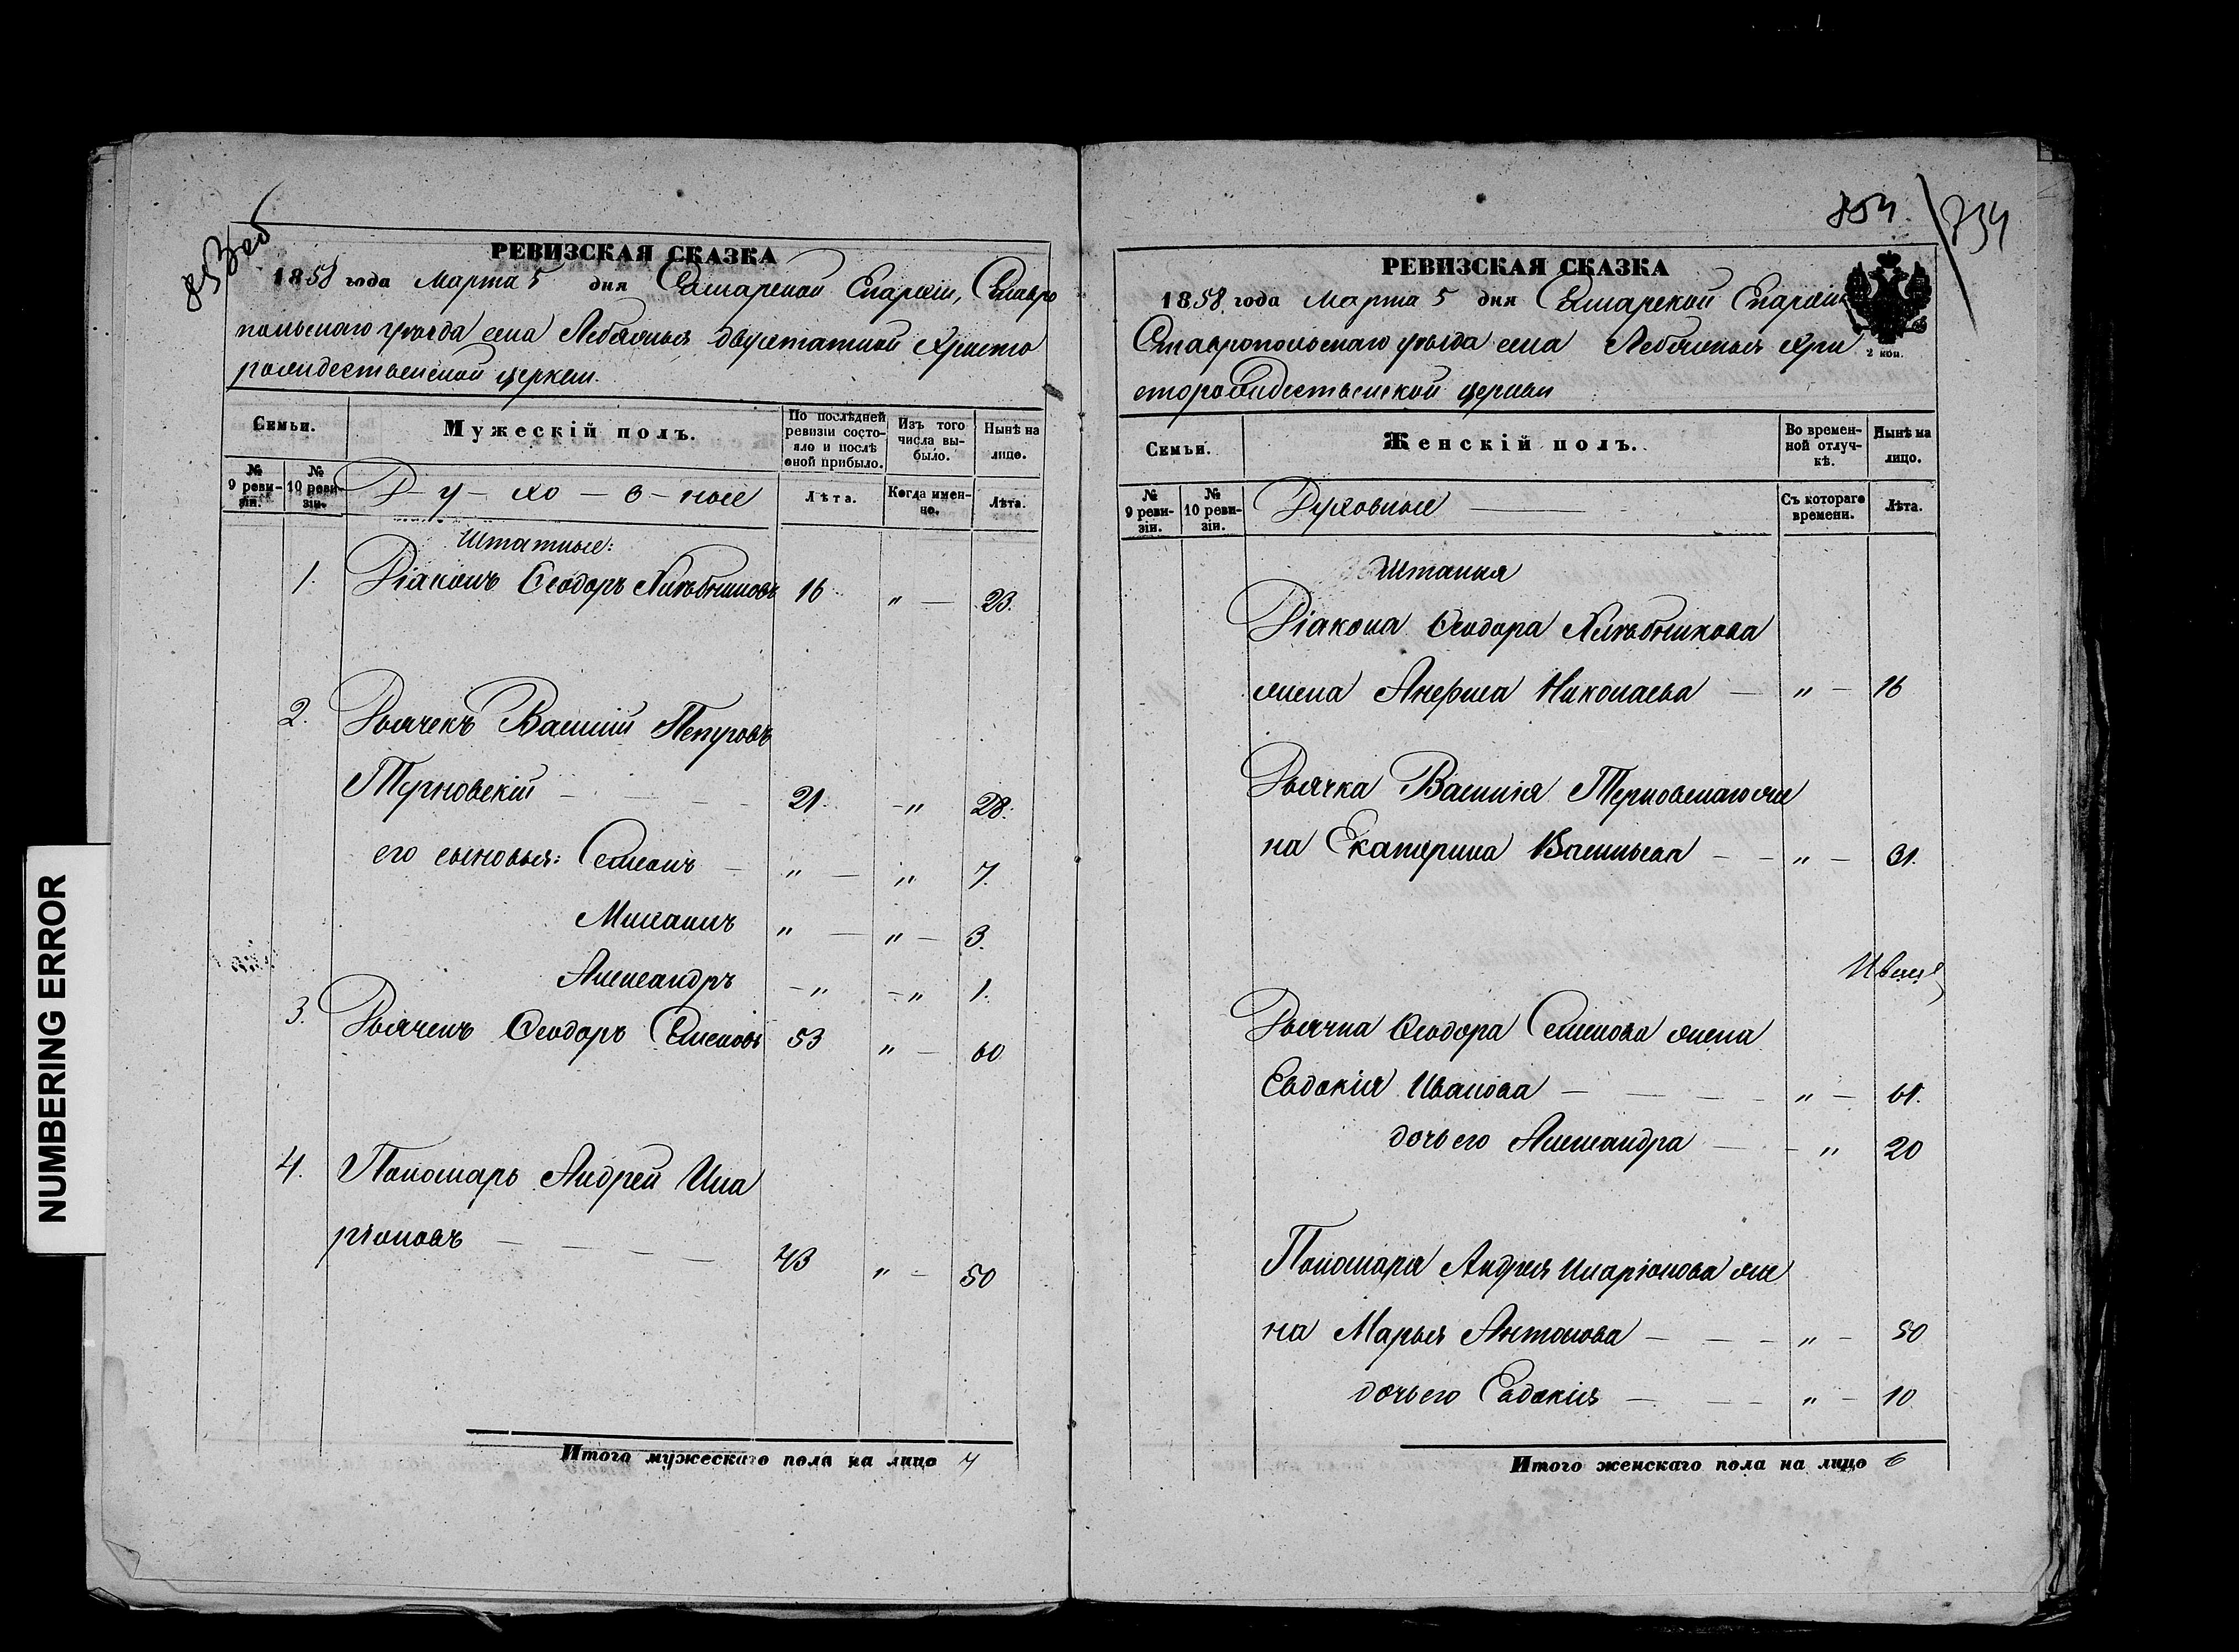 NUMBERING ERROR
853 об
РЕВИЗСКАЯ СКАЗКА
1858 года Марта 5 дня Самарской Епархіи, Ставро
польскаго уѣзда села Лебяжья двухштатной Христо
рождественской церкви.
Семьи.
Мужескій полъ.
По послѣдней ревизіи состояло и послѣ оной прибыло.
Изъ того числа выбыло.
Нынѣ на лицо.
№ 9 ревизіи.
№ 10 ревизіи.
Д-у-хо-в-ные
Лѣта.
Когда именно.
Лѣта.
Штатные:
1. Діаконъ Ѳеодоръ Хлѣбниковъ 16 " — 23.
2. Дьячекъ Василій Петровъ
Терновскій — — — 21. — " 28.
его сыновья: Семенъ — " — " 7.
Михаилъ " — " — 3.
Александръ — " — " 1.
3. Дьячекъ Ѳеодоръ Семеновъ 53 " — 60
4. Пономарь Андрей Ила
ріоновъ — — — — 43 " — 50
Итого мужескаго пола на лицо 7
854. 734
РЕВИЗСКАЯ СКАЗКА
2 коп.
1858 года Марта 5 дня Самарской Епархіи
Ставропольскаго уѣзда села Лебяжья Хри
сторождественской церкви
Семьи.
Женскій полъ.
Во временной отлучкѣ.
Нынѣ на лицо.
№ 9 ревизіи.
№ 10 ревизіи.
Духовные
Съ котораго времени.
Лѣта.
Діакона Ѳеодора Хлѣбникова
жена Анфиса Николаева — " — 16
Дьячка Василія Терновскаго же
на Екатерина Васильева — — " — 31.
Дьячка Ѳеодора Семенова жена
Евдокія Иванова — — — — " — 61.
дочь его Александра — — " 20
Пономаря Андрея Иларіонова же
на Марья Антонова — — — " — 50
дочь его Евдокія — — — " — 10
Итого женскаго пола на лицо 6